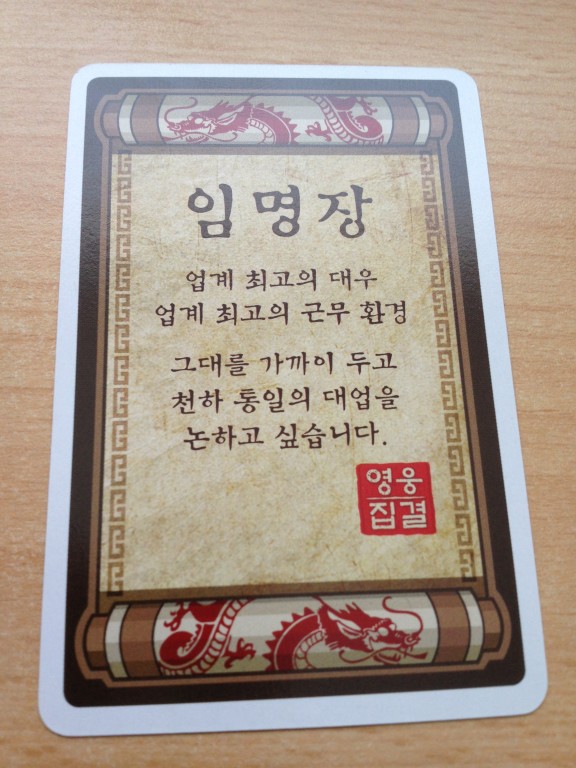 임명장
업계 최고의 대우
업계 최고의 근무 환경
그대를 가까이 두고
천하 통일의 대업을
논하고 싶습니다.
영웅
집결